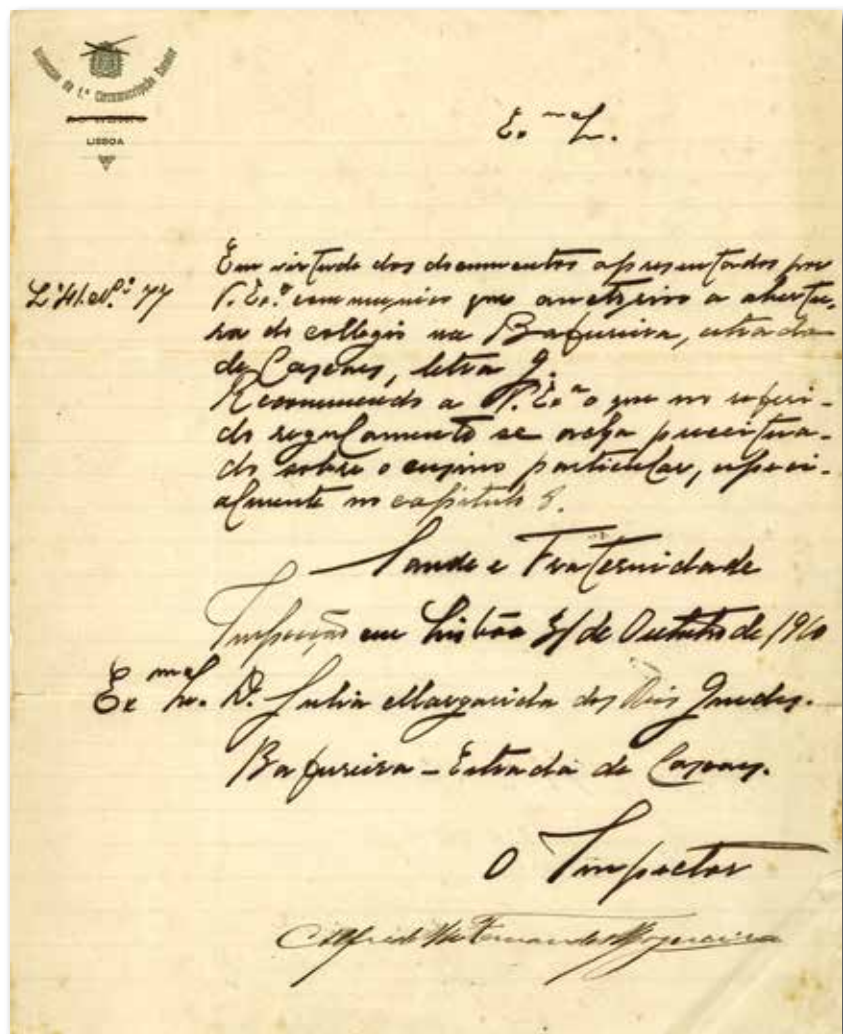 Inspecção da 1.ª Circumscripção Escolar
DO REINO
LISBOA
Ex.ma Sr.
L.º 41. N.º 77
Em virtude dos documentos apresentados por
V. Ex.ª communico que auctoriso a abertu-
ra do collegio na Bafureira, estrada
de Cascaes, letra J.
Recommendo a V. Ex.ª o que no referi-
do regulamento se acha preceitua-
do sobre o ensino particular, especi-
almente no capitulo 8.
Saude e Fraternidade
Inspecção em Lisbôa 31 de Outubro de 1910
Ex.ma Sr. D. Julia Margarida dos Reis Guedes.
Bafureira – Estrada de Cascaes.
O Inspector
Fernandes